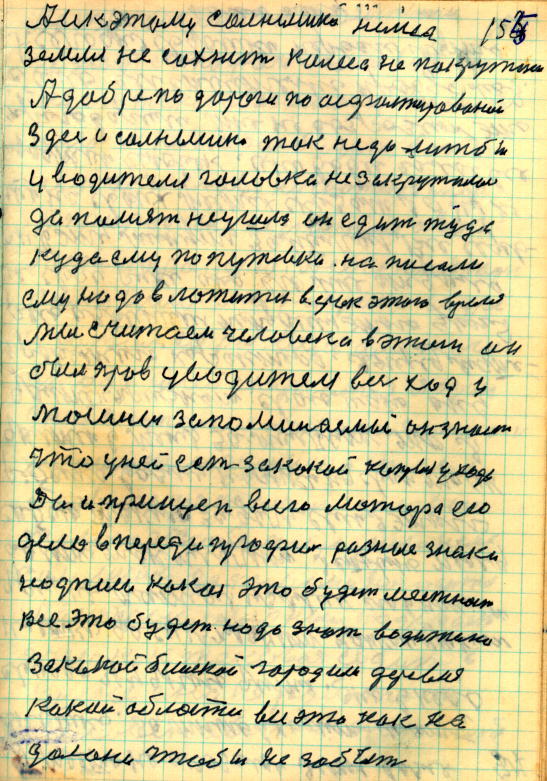 А и к этому солнышка немеа 155
земля не сохнит колеса не покрутиш
А добрепо дороги по асфалтированой
здес и солнышко так недо -штобы
у водителя головка незакружилас
да памят неушла он едит туда
куда ему попутёвки написали
ему надо вложитьи в срок этого время
мы считаем человека в этом он
был прав у водителя вес ход у
машины запоминаемый он знаит
что у ней ест закакой
и принцеп всего мотора его
дело впереди разные знаки
нодписи какая это будит местност
все это будит надо знат водителю
закакой бишкой город или деревня
какой области вес это как на
долони чтобы не забыт